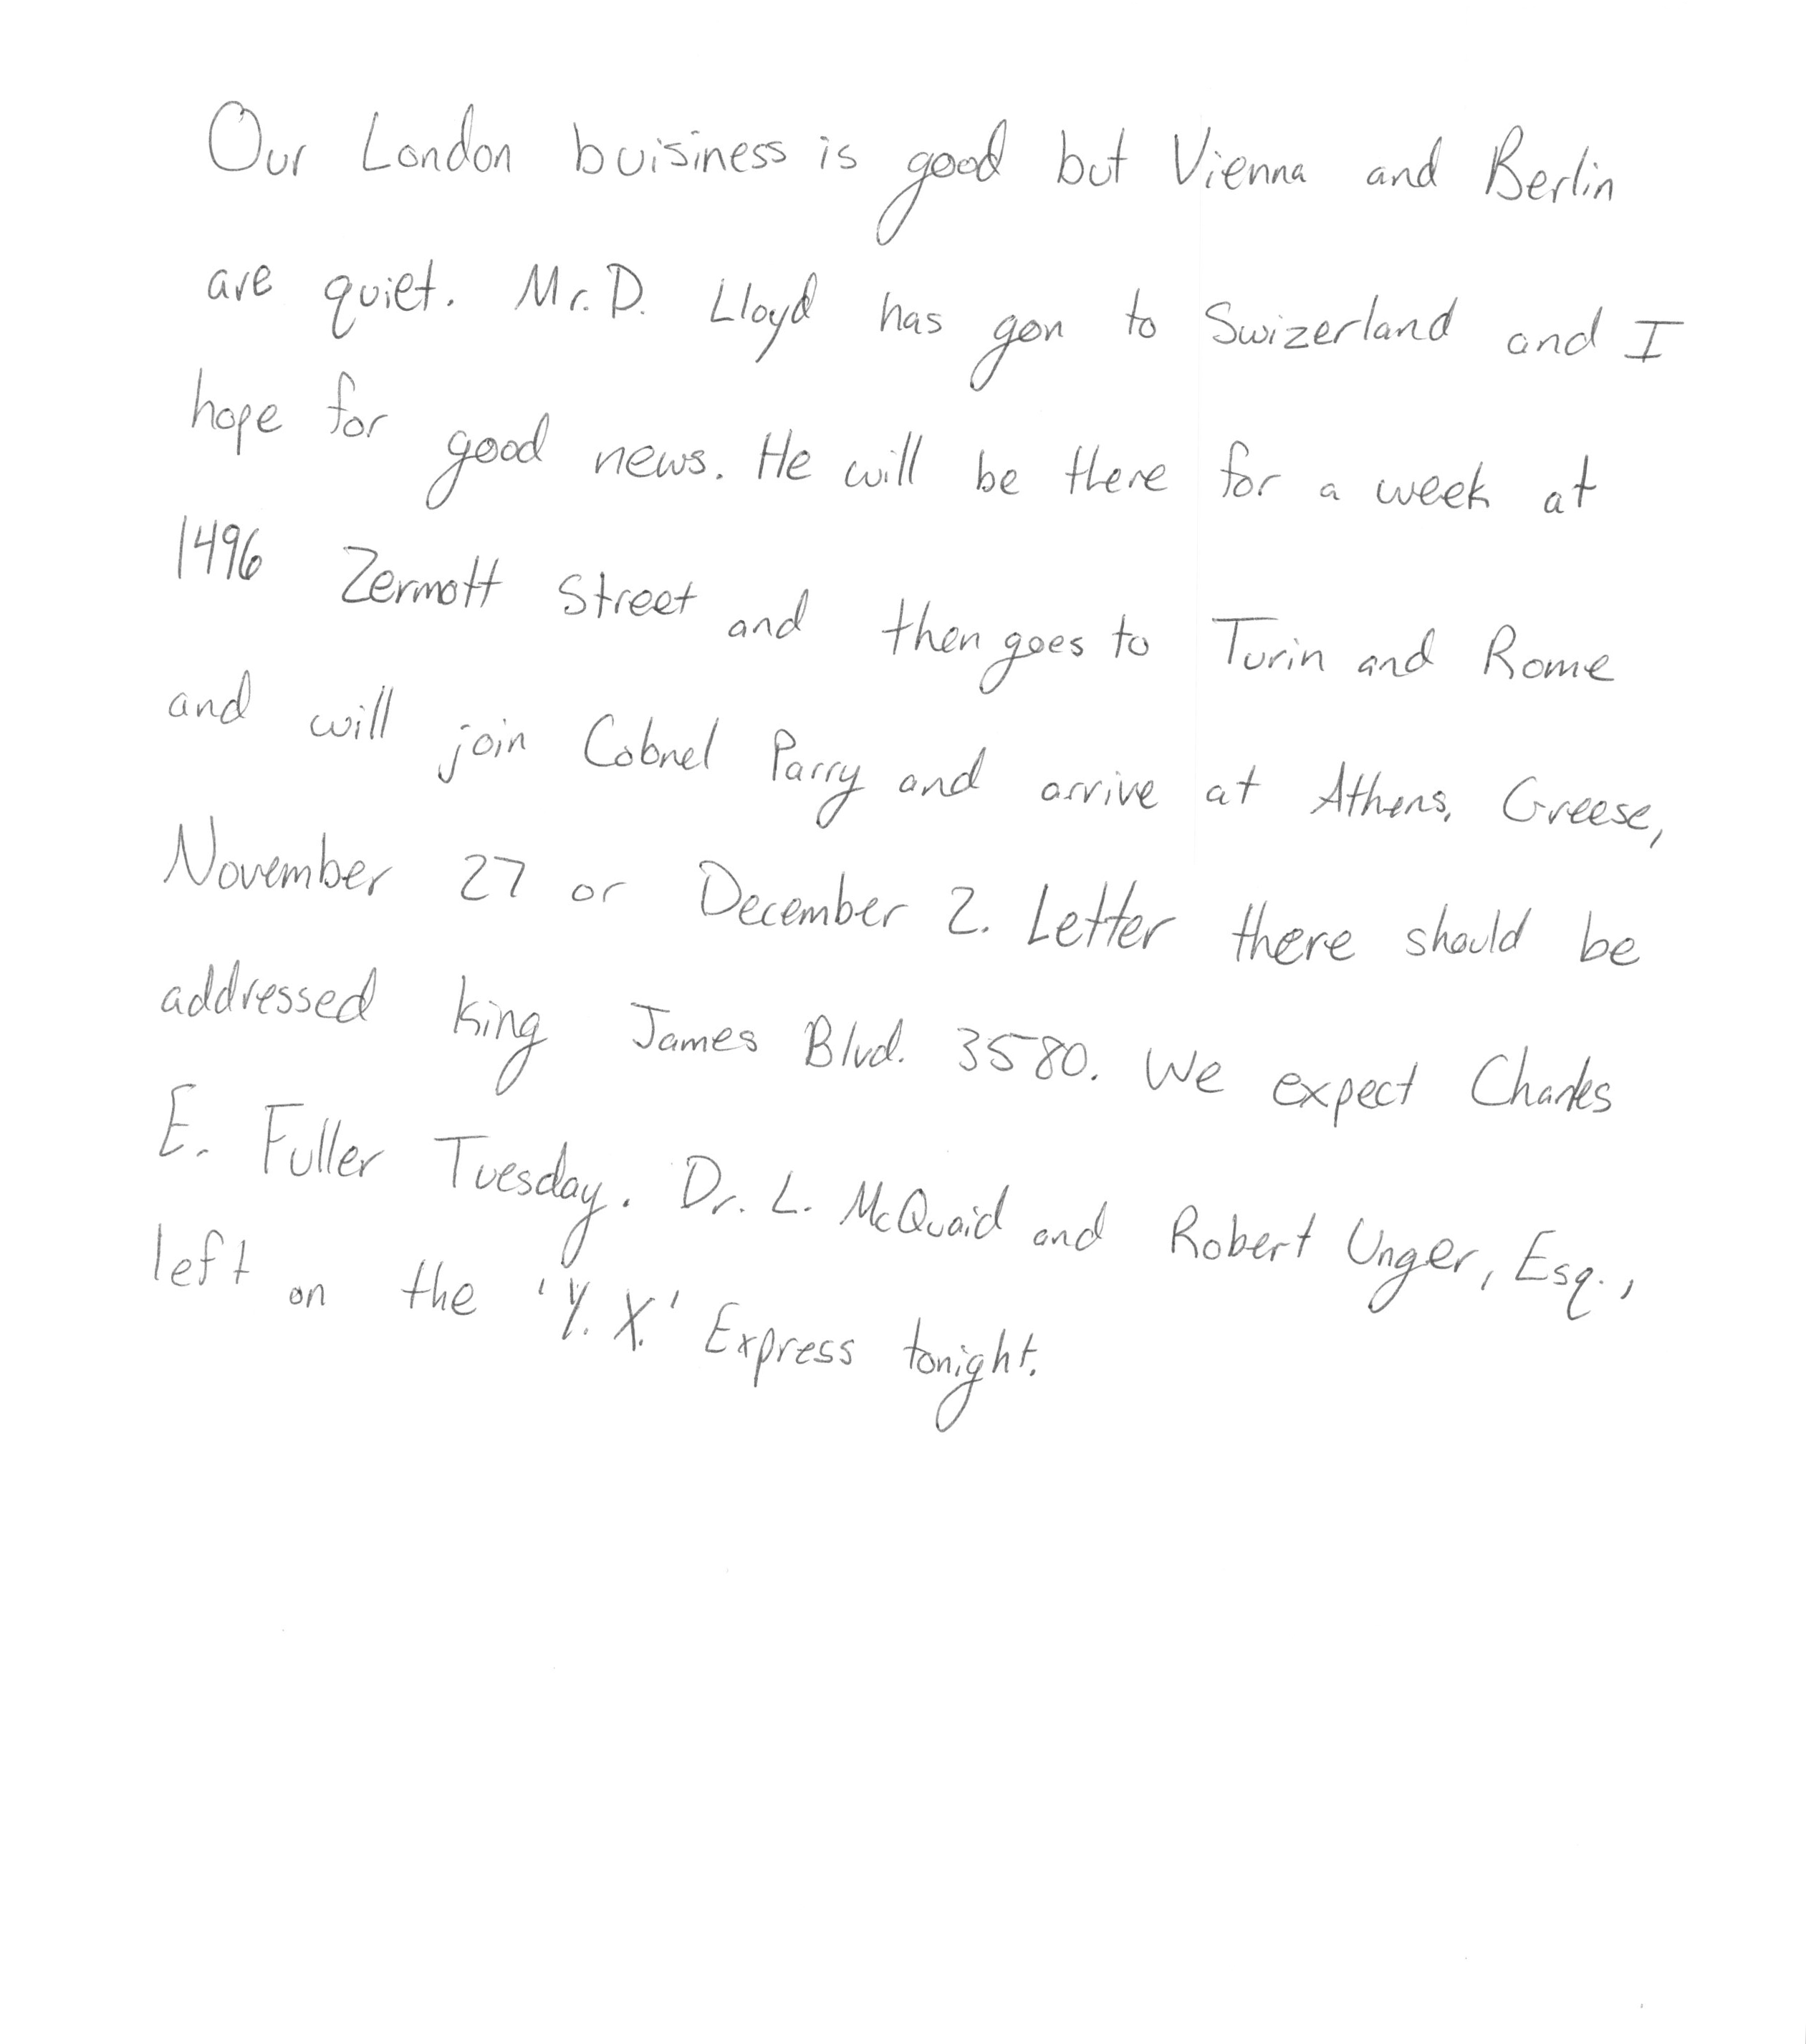 Our London buisiness is good but Vienna and Berlin
are quiet. Mr. D. Lloyd has gon to Swizerland and I
hope for good news. He will be there for a week at
1496 Zermott Street and then goes to Turin and Rome
and will join Colonel Parry and arrive at Athens, Greese,
November 27 or December 2. Letter there should be
addressed King James Blvd. 3580. We expect Charles
E. Fuller Tuesday. Dr. L. McQuaid and Robert Unger, Esq.,
left on the 'Y. X.' Express tonight.